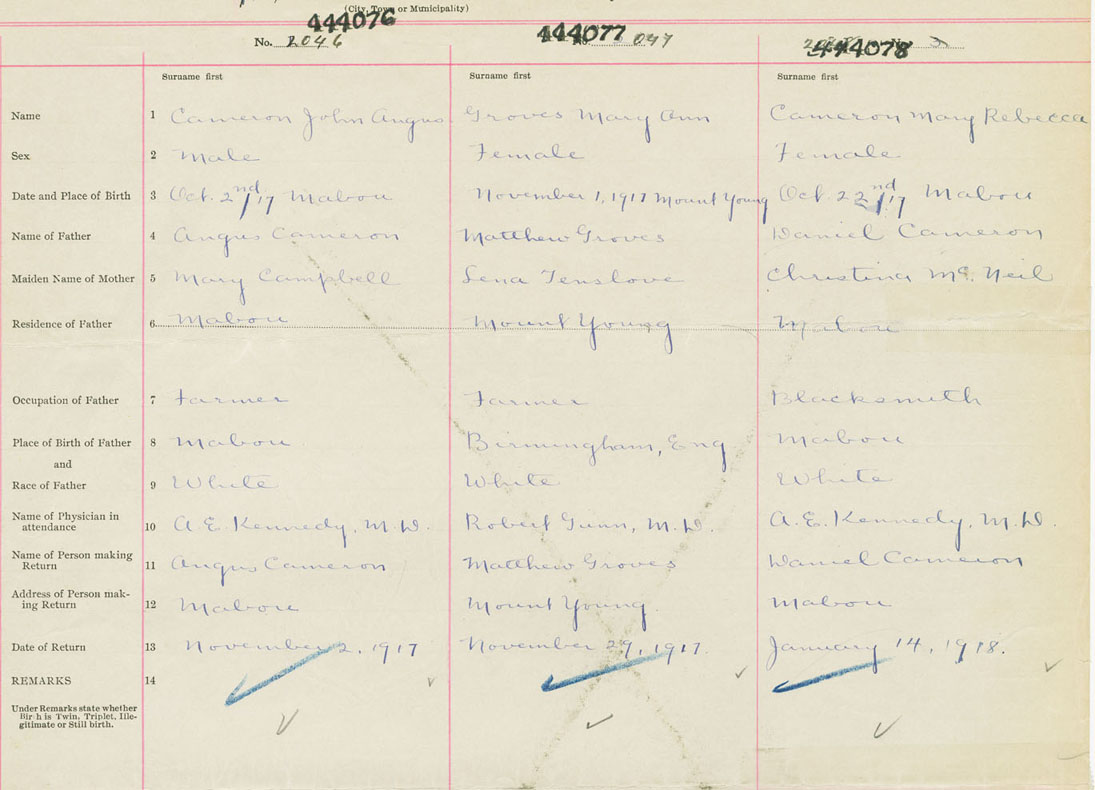 (City, Town or Municipality)
444076 444077 444078
No. 2046 No. 047
Surname first Surname first Surname first
Name 1 Cameron John Angus Groves Mary Ann Cameron Mary Rebecca
Sex 2 Male Female Female
Date and Place of Birth 3 Oct. 2nd/17 Mabou November 1, 1917 Mount Young Oct. 22nd/17 Mabou
Name of Father 4 Angus Cameron Matthew Groves Daniel Cameron
Maiden Name of Mother 5 Mary Campbell Lena Tenslove Christina Mc. Neil
Residence of Father 6 Mabou Mount Young Mabou
Occupation of Father 7 Farmer Farmer Blacksmith
Place of Birth of Father 8 Mabou Birmingham, Eng Mabou
and
Race of Father 9 White White White
Name of Physician in
attendance 10 A.E. Kennedy, M.D. Robert Gunn, M.D. A.E. Kennedy, M.D.
Name of Person making
Return 11 Angus Cameron Matthew Groves Daniel Cameron
Address of Person mak-
ing Return 12 Mabou Mount Young Mabou
Date of Return 13 November 2, 1917 November 29, 1917. January 14, 1918.
REMARKS 14
Under Remarks state whether
Birth is Twin, Triplet, Ille-
gitimate or Still birth.